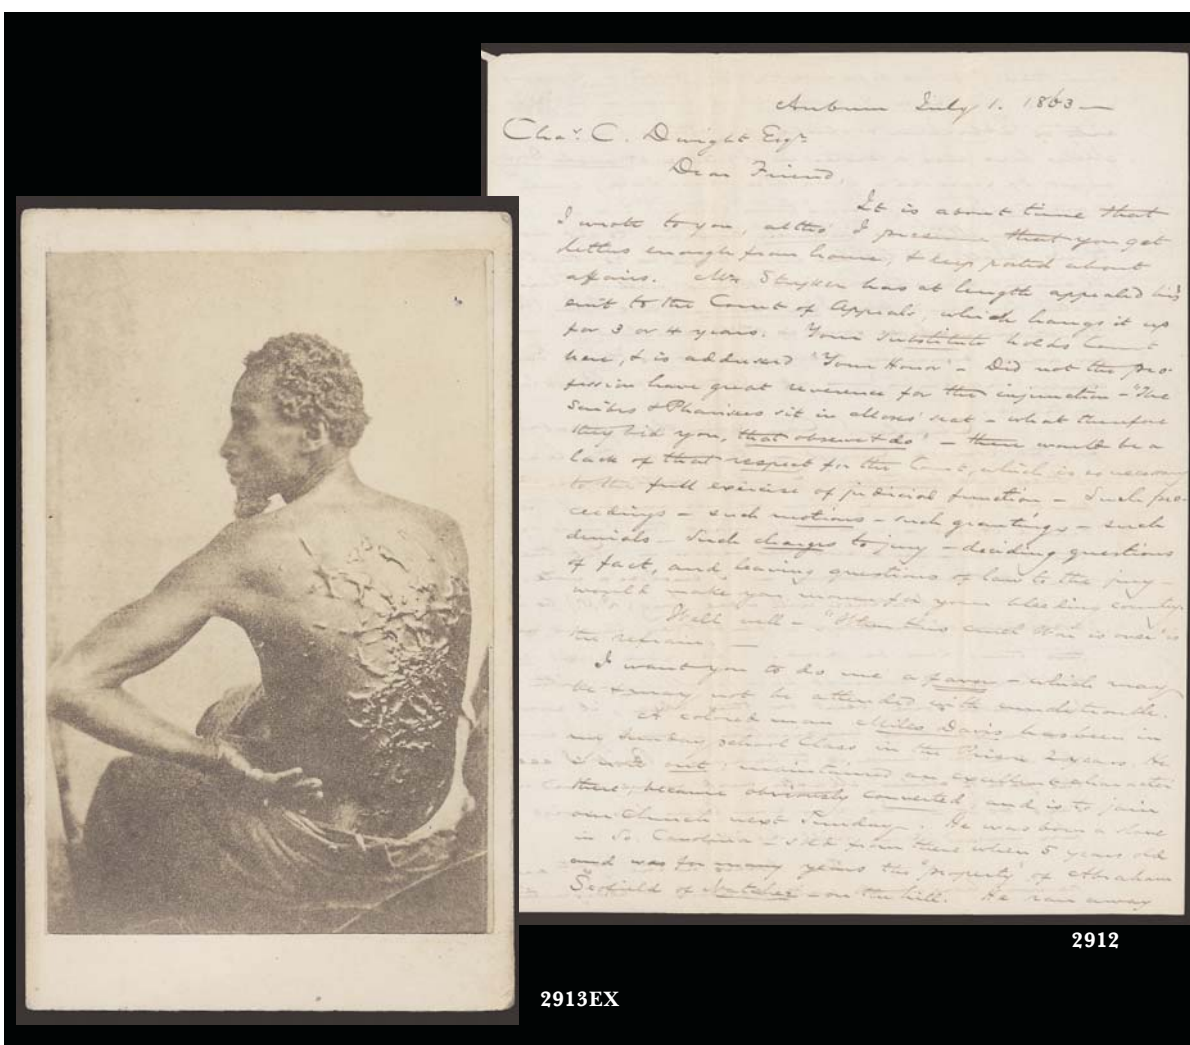 Auburn July 1. 1863 —
Chas. C. Dwight Esqr.
Dear Friend,
It is about time that
I wrote to you, altho' I presume that you get
letters enough from home, & keep posted about
affairs. Mr. Stryker has at length appealed his
suit to the Court of Appeals, which hangs it up
for 3 or 4 years. Your substitute holds Court
here, & is addressed "Your Honor" - Did not the pro-
fession have great reverence for the injunction - "The
Scribes & Pharisees sit in Moses' seat - what therefore
they bid you, that observe & do" - there would be a
lack of that respect for the Court, which is so necessary
to the full exercise of judicial function - Such pro-
ceedings - such motions - such grantings - such
denials - Such charges to jury - deciding questions
of fact, and leaving questions of law to the jury -
would make you mourn for your bleeding country.
Well well - "When this cruel War is over" is
the refrain. —
I want you to do me a favor - which may
be & may not be attended with much trouble.
A colored man Miles Davis has been in
my Sunday school Class in the Prison 2 years. He
is now out; maintained an excellent character
there, became obviously converted, and is to join
our Church next Sunday. He was born a slave
in So. Carolina - sold from there when 5 years old
and was for many years the "property" of Abraham
Scofield of Natchez - on the hill. He ran away
2912
2913EX